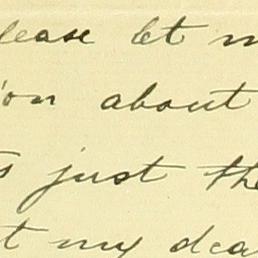 lease let m
ion about
s just the
t my dea